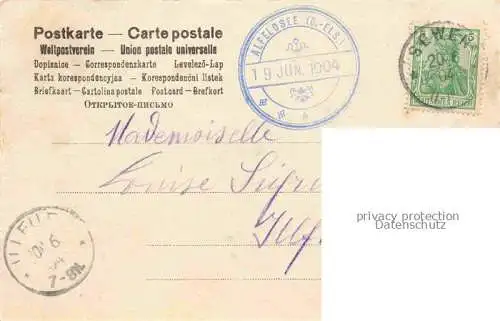 Postkarte — Carte postale
Weltpostverein — Union postale universelle
Dopisnice - Correspondenzkarte Levelező-Lap
Karta korespondencyjna - Korespondenční listek
Briefkaart - Cartolina postale Postcard - Brefkort
ОТКРЫТОЕ-ПИСЬМО
ALFELDSEE (O.-ELS.)
19 JUN. 1904
SEWEN
20 6
04
5
Mademoiselle
Louise
privacy protection
Datenschutz
6
04
7-8N.